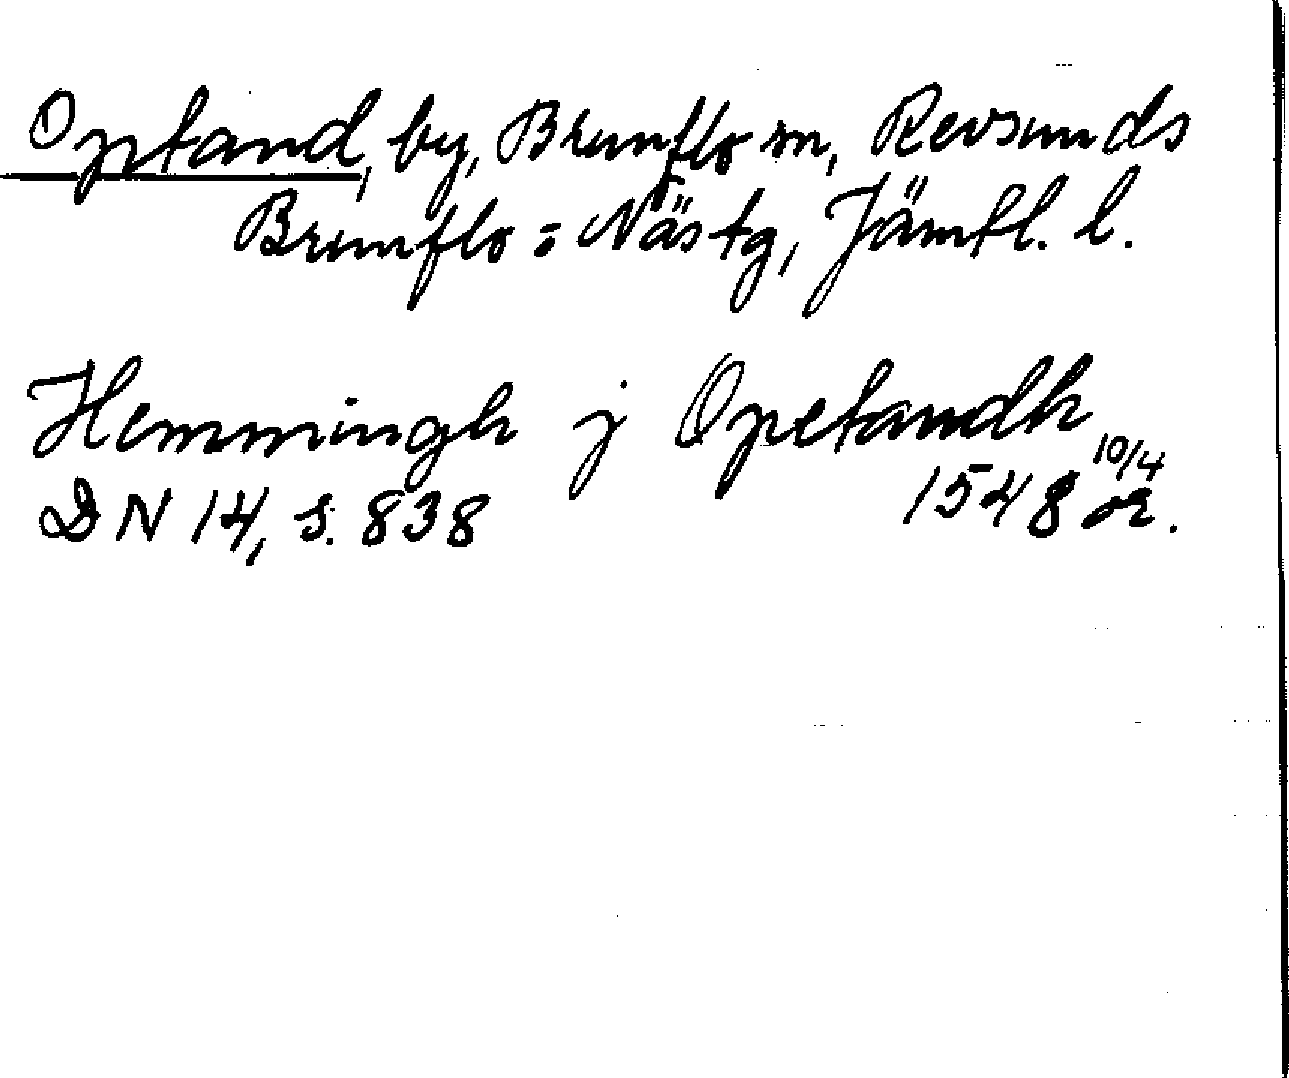 Optand, by, Brunflo sn, Revsunds
Brunflo o Näs tg, Jämtl. l.
Hemmingh j Opetandh
DN 14, s. 838 1548 10/4 or.